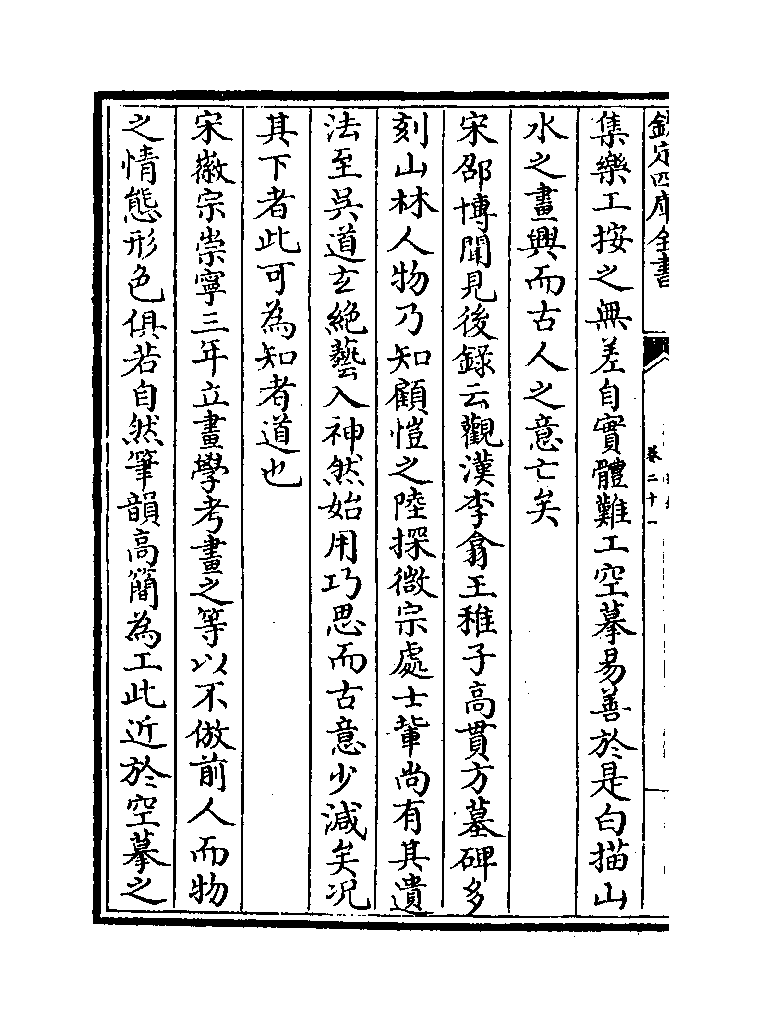 欽定四庫全書
卷二十一
集樂工按之無差自實體難工空摹易善於是白描山
水之畫興而古人之意亡矣
宋邵博聞見後錄云觀漢李翕王稚子高貫方墓碑多
刻山林人物乃知顧愷之陸探微宗處士軰尚有其遺
法至吳道玄絶藝入神然始用巧思而古意少減矣况
其下者此可為知者道也
宋徽宗崇寧三年立畫學考畫之等以不倣前人而物
之情態形色俱若自然筆韻高簡為工此近於空摹之